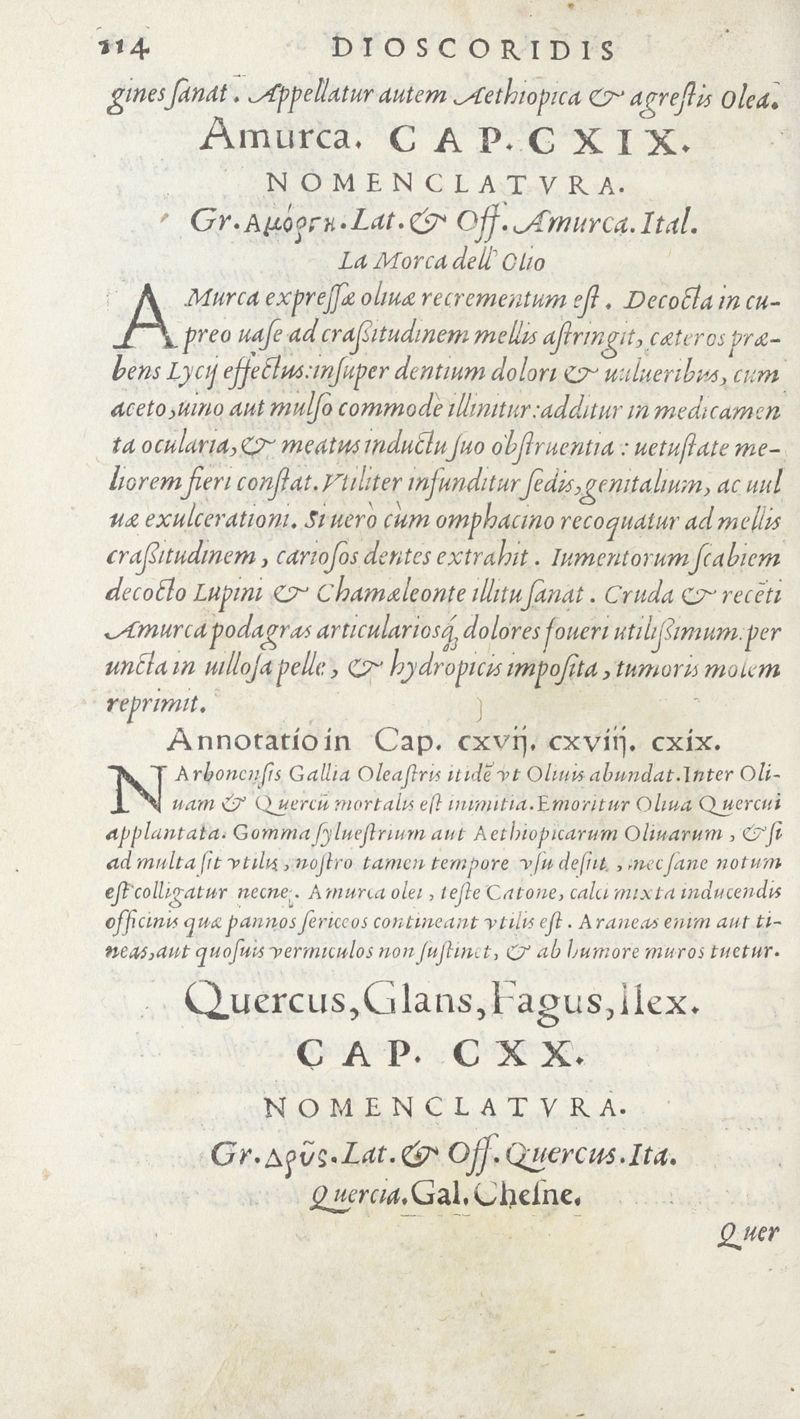 114 DIOSCORIDIS
gines sanat. Appellatur autem Aethiopica & agrestis Olea.
Amurca. CAP. CXIX.
NOMENCLATVRA.
Gr. Αμόργη. Lat. & Off. Amurca. Ital.
La Morca dell' Olio
AMurca expressæ oliuæ recrementum est. Decocta in cu-
preo uase ad craßitudinem mellis astringit, cæteros præ-
bens Lycij effectus: insuper dentium dolori & uulneribus, cum
aceto, uino aut mulso commodè illinitur: additur in medicamen
ta ocularia, & meatus inductu suo obstruentia: uetustate me-
liorem fieri constat. Vtiliter infunditur sedis, genitalium, ac uul
uæ exulcerationi. Si uerò cùm omphacino recoquatur ad mellis
craßitudinem, cariosos dentes extrahit. Iumentorum scabiem
decocto Lupini & Chamæleonte illitu sanat. Cruda & recēti
Amurca podagras articulariosq́; dolores foueri utilißimum: per
uncta in uillosa pelle, & hydropicis imposita, tumoris molem
reprimit.
Annotatio in Cap. cxvij. cxviij. cxix.
NArbonensis Gallia Oleastris itidē vt Oliuis abundat. Inter Oli-
uam & Quercū mortalis est inimitia. Emoritur Oliua Quercui
applantata. Gomma syluestrium aut Aethiopicarum Oliuarum, & si
ad multa sit vtilis, nostro tamen tempore vsu desiit, nec sane notum
est colligatur necne. Amurca olei, teste Catone, calci mixta inducendis
officinis quæ pannos sericeos contineant vtilis est. Araneas enim aut ti-
neas, aut quosuis vermiculos non sustinet, & ab humore muros tuetur.
Quercus, Glans, Fagus, Ilex.
CAP. CXX.
NOMENCLATVRA.
Gr. Δρῦς. Lat. & Off. Quercus. Ita.
Quercia. Gal. Chesne.
Quer